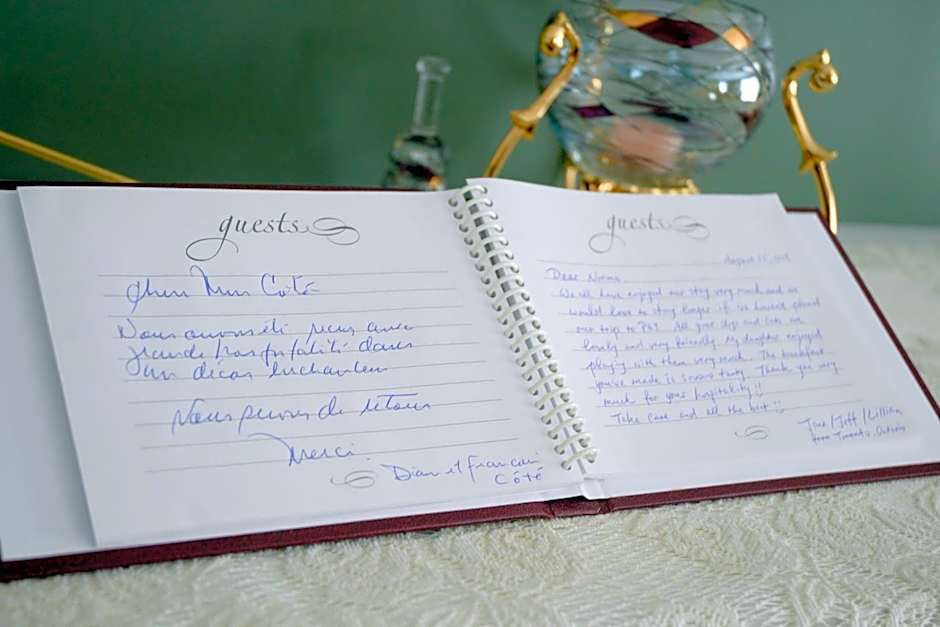 guests
Mrs Côté
Nous avons été reçus avec
grande hospitalité dans
un décor enchanteur
Nous de retour
Merci.
Dian et Francois
Côté
guests
August
Dear Norma
We all have enjoyed our stay very much and we
would love to stay longer if we haven't planned
our trip to PEI. All your dogs and cats are
lovely and very friendly. My daughter enjoyed
playing with them very much. The breakfast
you've made is so tasty. Thank you very
much for your hospitality!!
Take care and all the best!!
Jane/Jeff/Lillian
from Toronto, Ontario